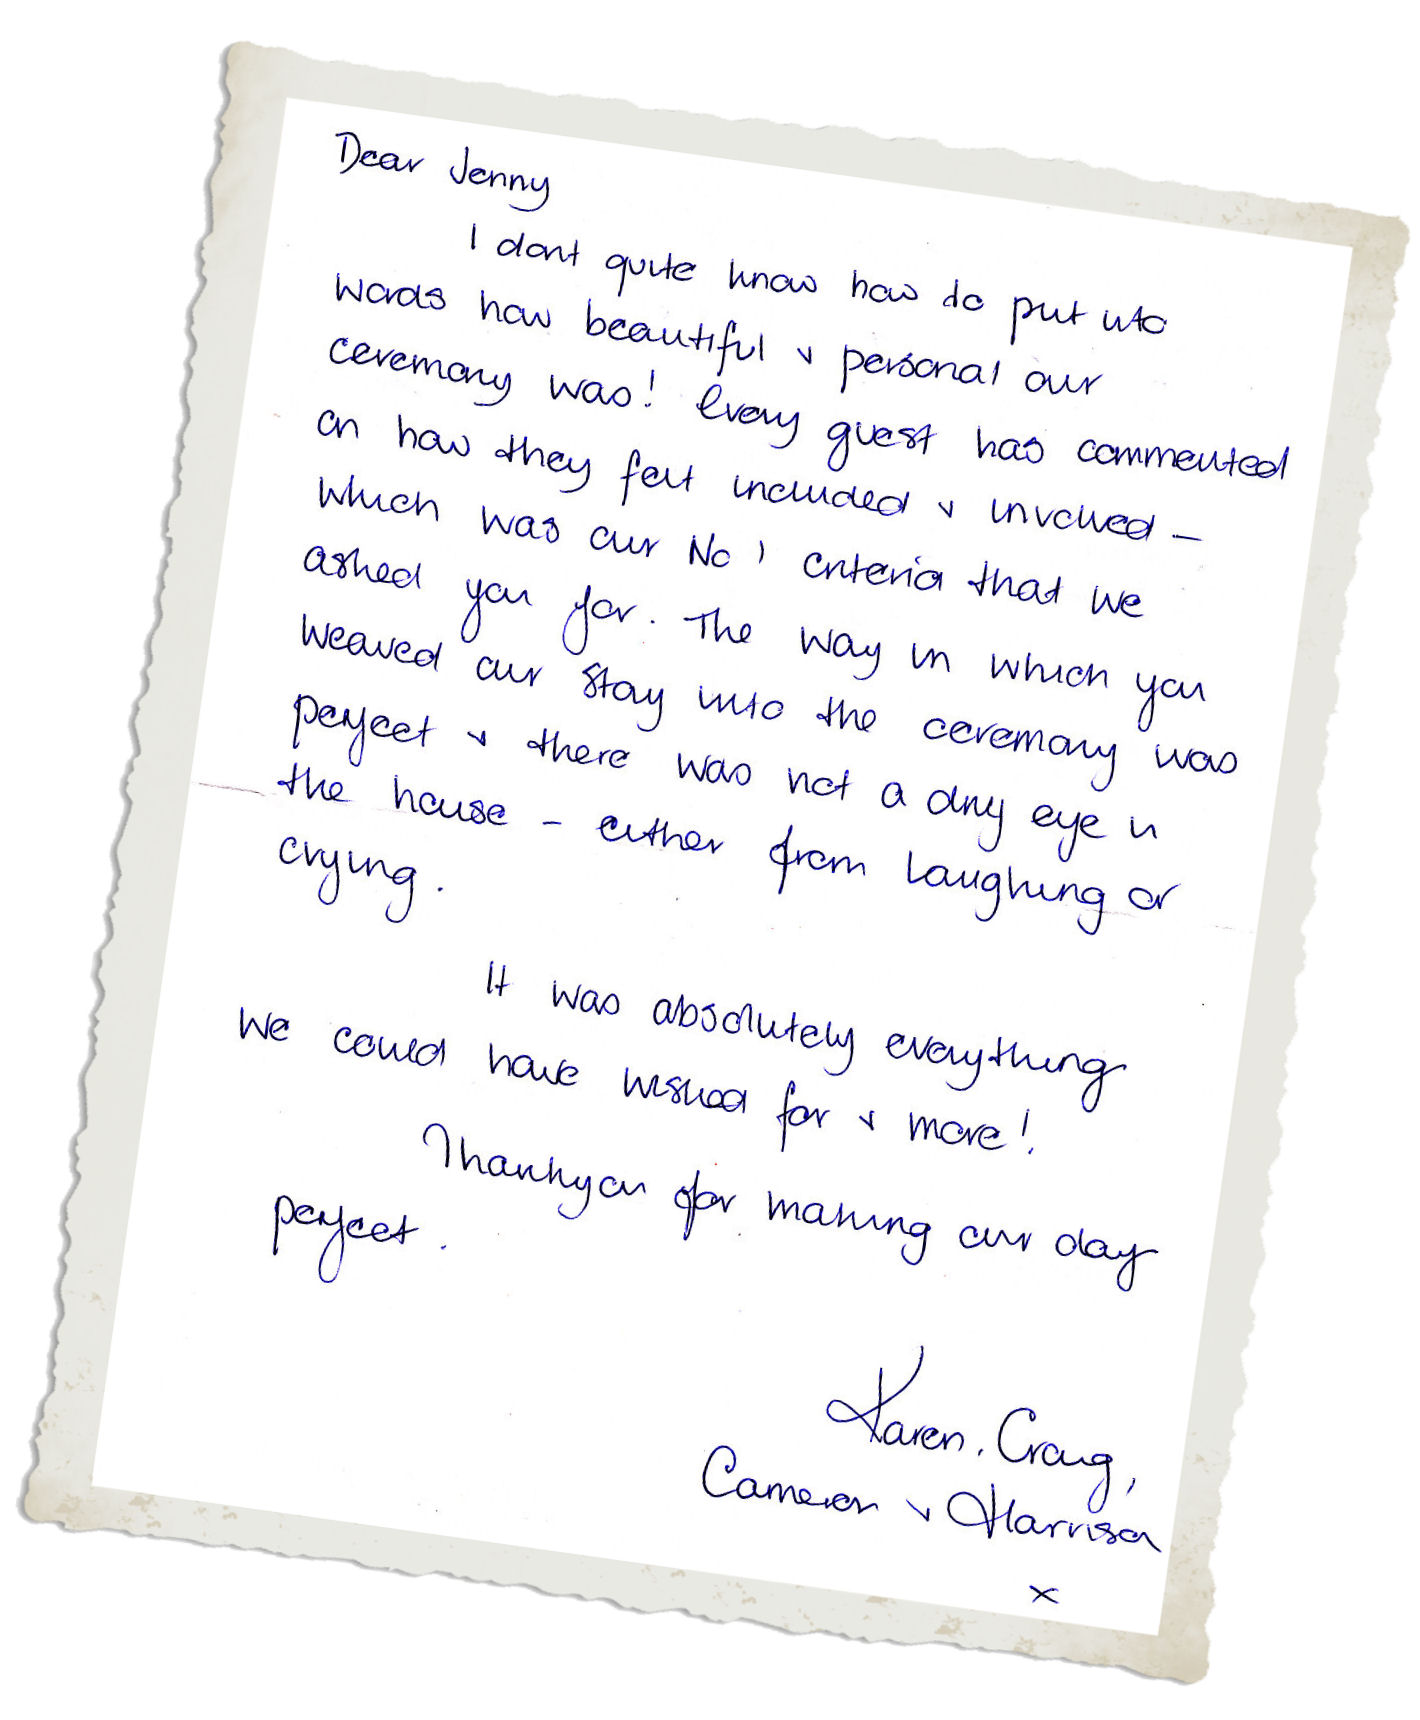 Dear Jenny
I dont quite know how do put into
words how beautiful & personal our
ceremony was! Every guest has commented
on how they felt included & involved -
which was our No 1 criteria that we
asked you for. The way in which you
weaved our stay into the ceremony was
perfect & there was not a dry eye in
the house - either from laughing or
crying.
It was absolutely everything
we could have wished for & more!
Thankyou for making our day
perfect.
Karen, Craig,
Cameron & Harrison
x